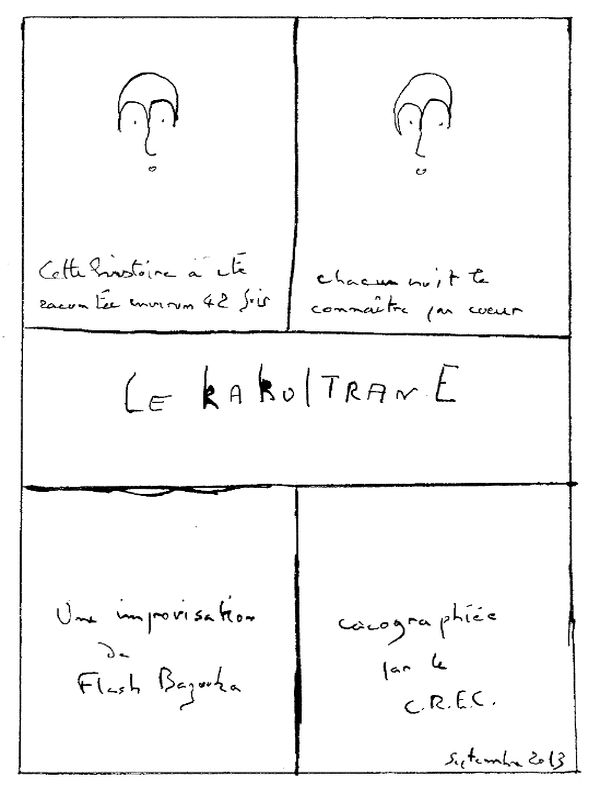 Cette histoire à été
racontée environ 42 fois
chacun croit le
connaître par coeur
LE KAKOlTRANE
Une improvisation
de
Flash Bazooka
cacographiée
par le
C.R.E.C.
Septembre 2013